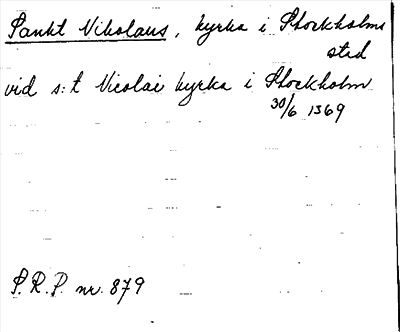 Sankt Nikolaus, kyrka i Stockholms
stad
vid s:t Nicolai kyrka i Stockholm
30/6 1369
P.R.P. nr. 879